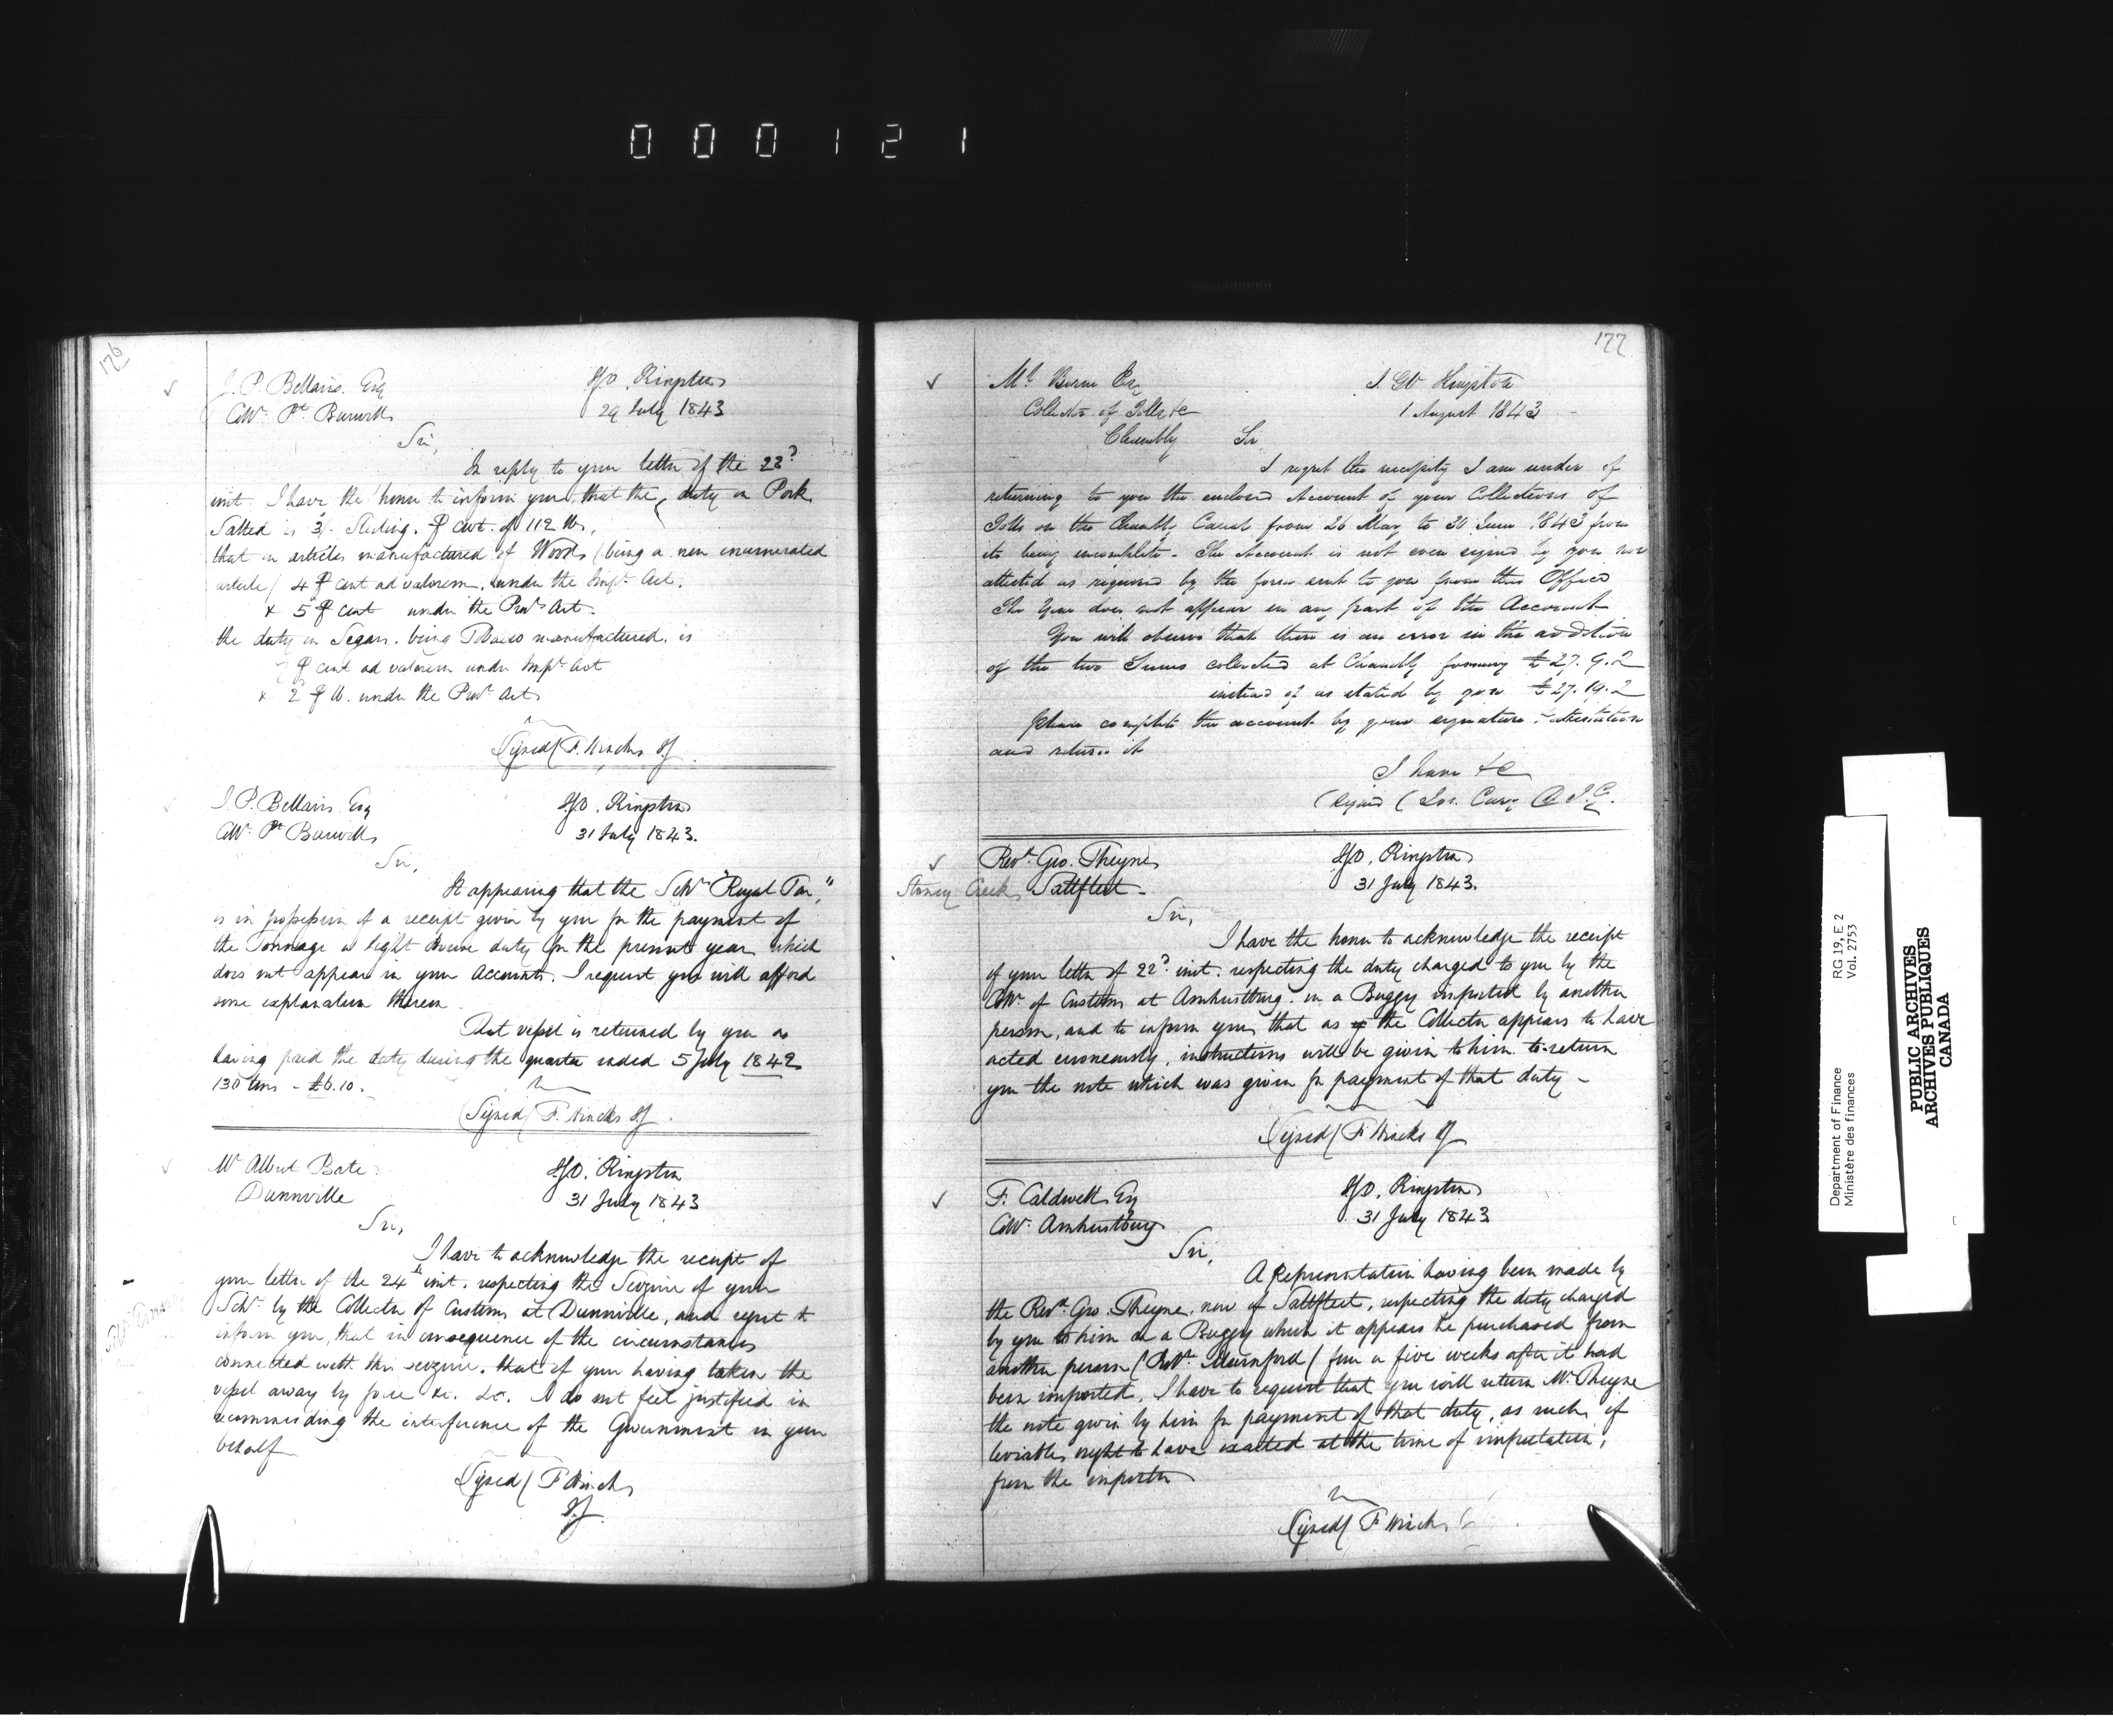 000121
176
J. P. Bellairs Esq
Collr Pt Burwell
IGO. Kingston
29 July 1843
Sir,
In reply to your letter of the 22d
inst. I have the honor to inform you, that the duty on Pork
Salted is 3/. Sterling. ⅌ cwt. of 112 lbs,
that on articles manufactured of Wood (being a non enumerated
article) 4 ⅌ cent ad valorem, under the Impl Act.
& 5 ⅌ cent under the Provl Act.
the duty on Segars. being Tobacco manufactured, is
7 ⅌ cent ad valorem under Impl Act
& 2 ⅌ lb. under the Provl Act
(Signed) F. Hincks IG
J. P. Bellairs Esq
Collr Pt Burwell
IGO. Kingston
31 July 1843.
Sir,
It appearing that the Schr "Royal Tar,"
is in possession of a receipt given by you for the payment of
the Tonnage or light House duty for the present year which
does not appear in your Accounts. I request you will afford
some explanation thereon
That vessel is returned by you as
having paid the duty during the quarter ended 5 July 1842
130 tons - £6.10.
(Signed) F. Hincks IG.
Mr Albert Bate
Dunnville
IGO. Kingston
31 July 1843
Sir,
I have to acknowledge the receipt of
your letter of the 24th inst. respecting the Seizure of your
Schr by the Collector of Customs at Dunnville, and regret to
inform you, that in consequence of the circumstances
connected with this seizure. that of your having taken the
vessel away by force &c. &c. I do not feel justified in
recommending the interference of the Government in your
behalf
(Signed) F Hincks
IG
177
Collector of Tolls &c
Chambly
I GO Kingston
1 August 1843
Sir
I regret the necessity I am under of
returning to you the enclosed Account of your Collections of
Tolls on the Chambly Canal from 26 May to 30 June 1843 from
its being incomplete - The Account is not even signed by you nor
attested as required by the form sent to you from this Office
The Year does not appear in any part of the Account
You will observe that there is an error in the addition
of the two Sums collected at Chambly forming £27.9.2
instead of as stated by you £27.19.2
Please complete the account by your signature & attestation
and return it
I have &c
(Signed) Jos. Cary D I.G.
Revd Geo. Cheyne
Stoney Creek Saltfleet -
IGO. Kingston
31 July 1843.
Sir,
I have the honor to acknowledge the receipt
of your letter of 22d inst. respecting the duty charged to you by the
Collr of Customs at Amherstburg. on a Buggy imported by another
person, and to inform you, that as the Collector appears to have
acted erroneously, instructions will be given to him to return
you the note which was given for payment of that duty -
(Signed) F Hincks IG
F. Caldwell Esq
Collr Amherstburg
IGO. Kingston
31 July 1843
Sir,
A Representation having been made by
the Revd. Geo. Cheyne, now of Saltfleet, respecting the duty charged
by you to him on a Buggy which it appears he purchased from
another person (Revd. Mumford) four or five weeks after it had
been imported, I have to request that you will return Mr. Cheyne
the note given by him for payment of that duty, as such if
leviable, ought to have exacted at the time of importation,
from the importer
(Signed) F Hincks
Department of Finance
Ministère des finances
RG 19, E 2
Vol. 2753
PUBLIC ARCHIVES
ARCHIVES PUBLIQUES
CANADA